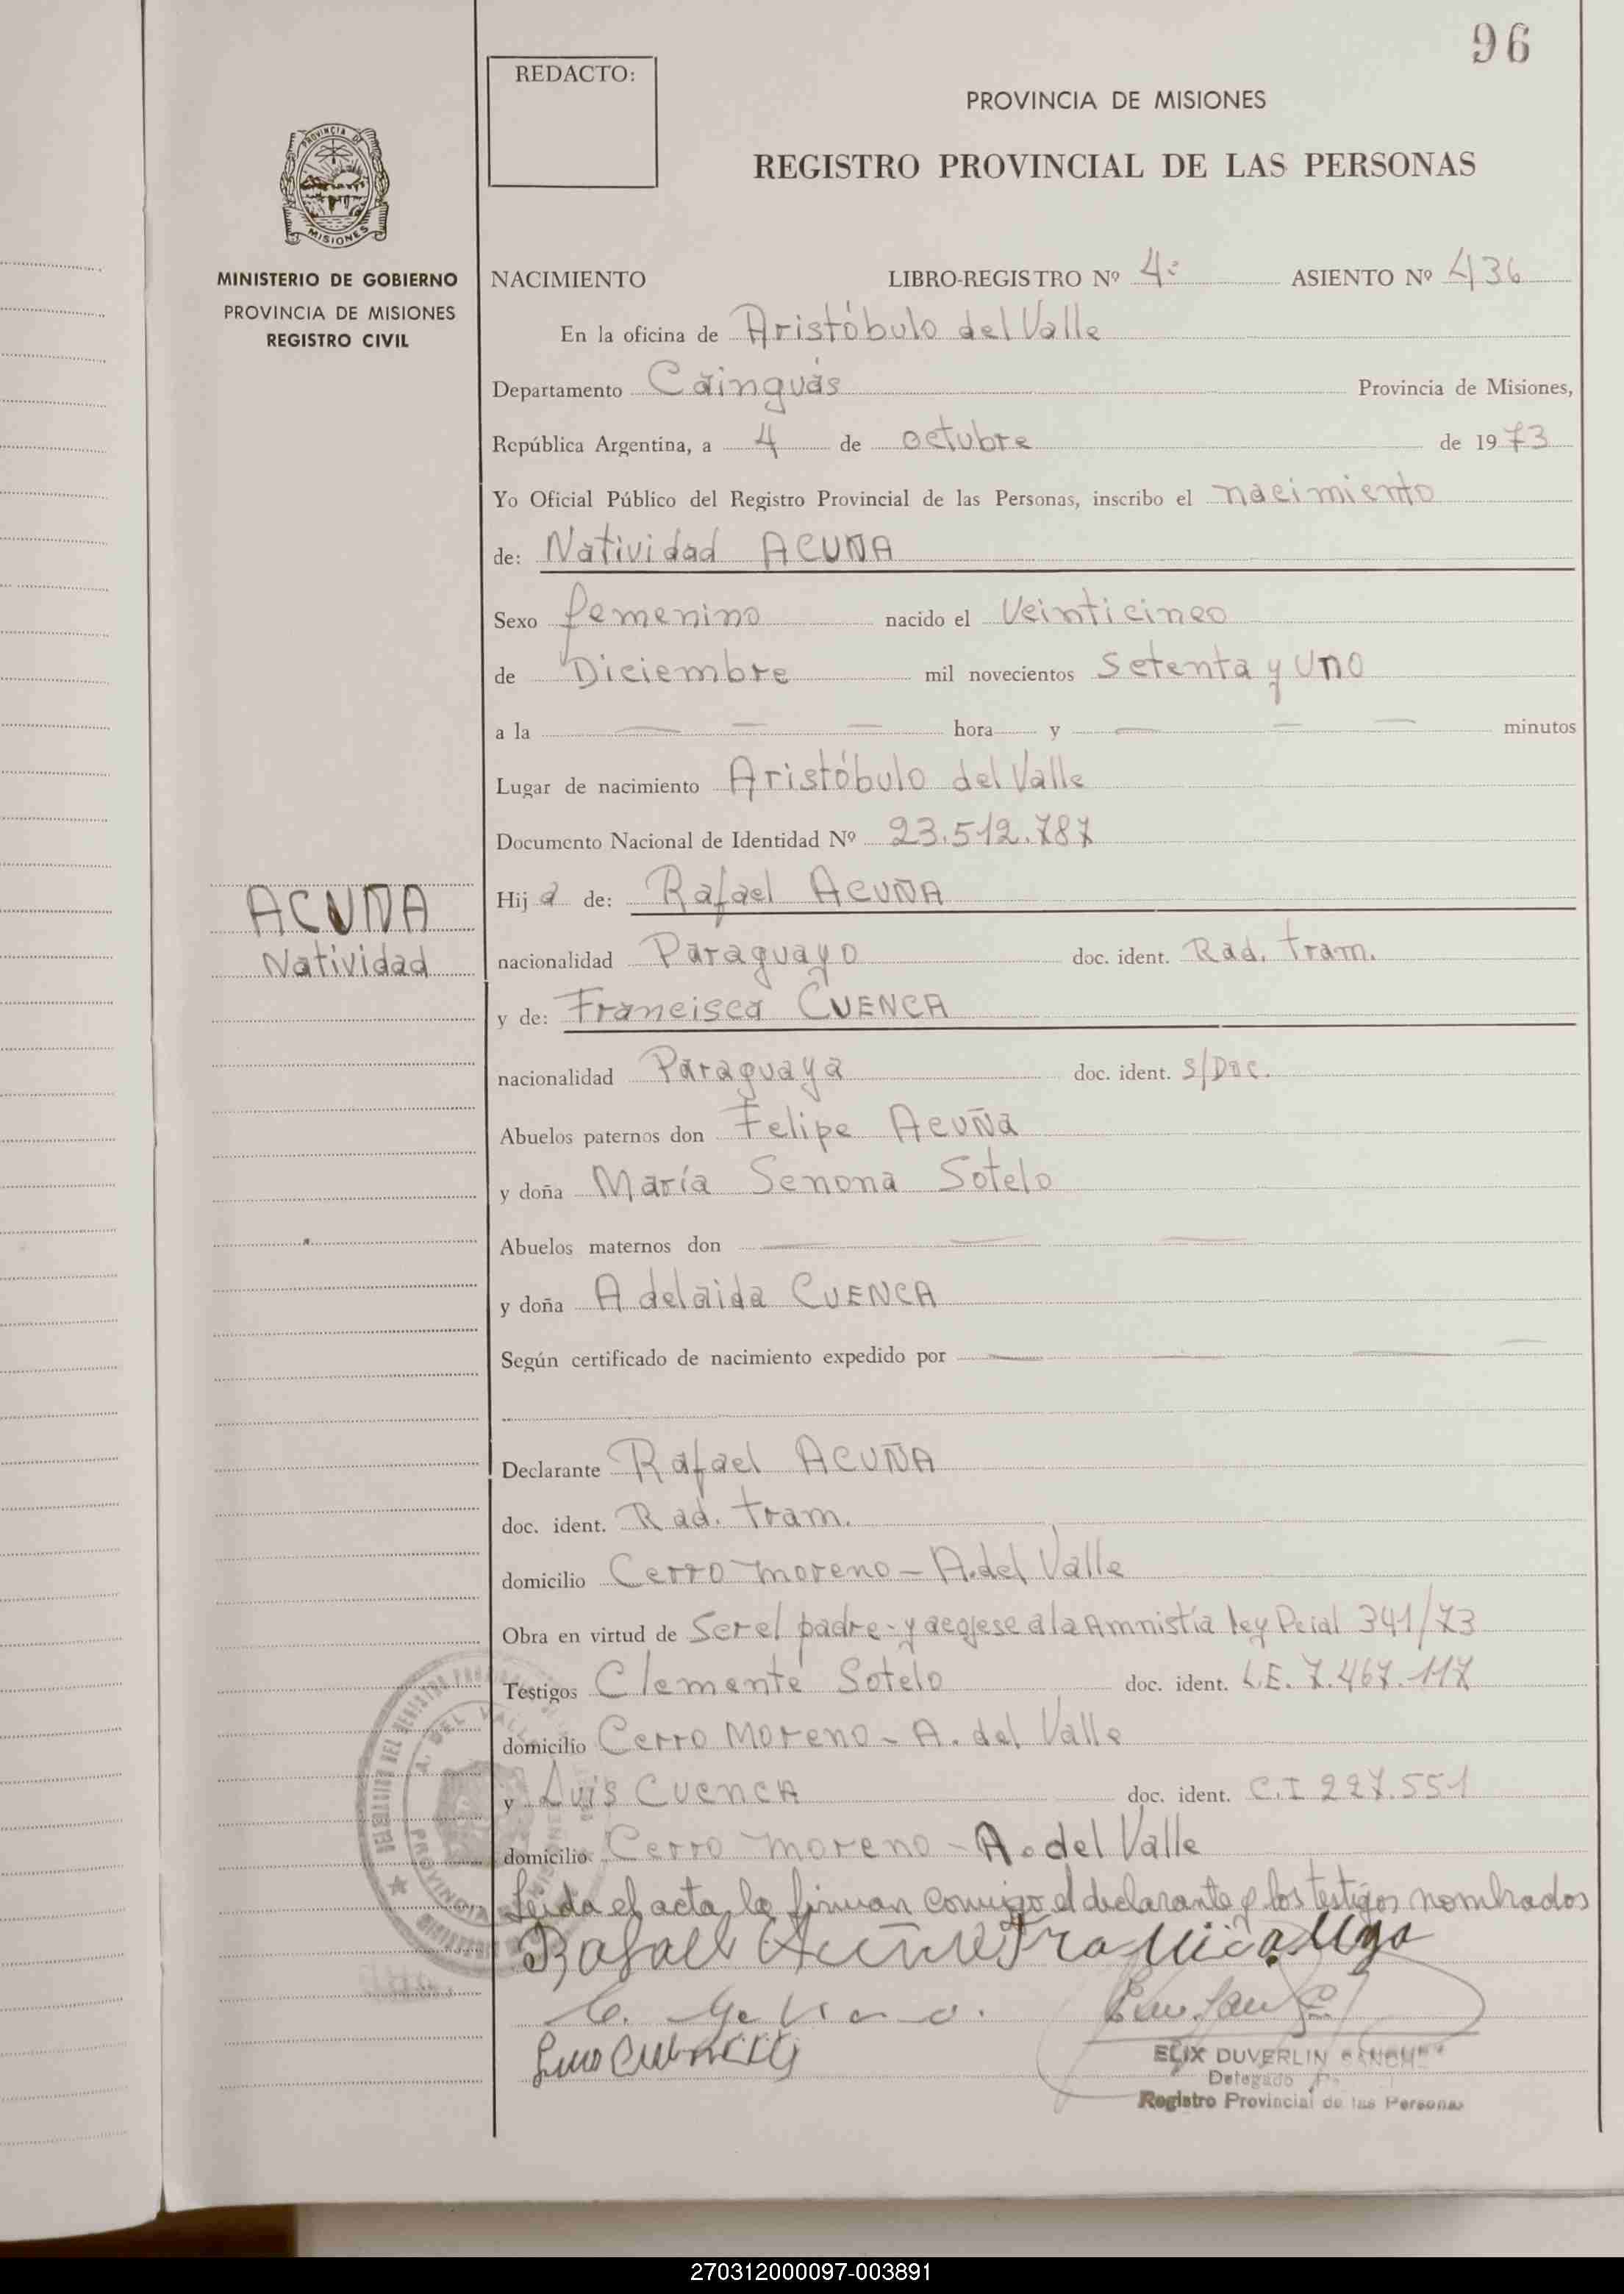 96
REDACTO:
PROVINCIA DE MISIONES
REGISTRO PROVINCIAL DE LAS PERSONAS
PROVINCIA DE
MISIONES
MINISTERIO DE GOBIERNO
PROVINCIA DE MISIONES
REGISTRO CIVIL
NACIMIENTO LIBRO-REGISTRO Nº 4º ASIENTO Nº 436
En la oficina de Aristóbulo del Valle
Departamento Cainguás Provincia de Misiones,
República Argentina, a 4 de octubre de 1973
Yo Oficial Público del Registro Provincial de las Personas, inscribo el nacimiento
de: Natividad ACUÑA
Sexo femenino nacido el Veinticinco
de Diciembre mil novecientos Setenta y Uno
a la hora y minutos
Lugar de nacimiento Aristóbulo del Valle
Documento Nacional de Identidad Nº 23.512.787
ACUÑA
Natividad
Hija de: Rafael ACUÑA
nacionalidad Paraguayo doc. ident. Rad. Tram.
y de: Francisca CUENCA
nacionalidad Paraguaya doc. ident. S/Doc.
Abuelos paternos don Felipe Acuña
y doña María Senona Sotelo
Abuelos maternos don
y doña Adelaida CUENCA
Según certificado de nacimiento expedido por
Declarante Rafael ACUÑA
doc. ident. Rad. Tram.
domicilio Cerro Moreno - A. del Valle
Obra en virtud de Ser el padre - y acojese a la Amnistía ley Pcial 341/73
Testigos Clemente Sotelo doc. ident. L.E. 7.467.117
domicilio Cerro Moreno - A. del Valle
y Luis CUENCA doc. ident. C.I 227.551
domicilio Cerro Moreno - A. del Valle
Leída el acta, la firman conmigo el declarante y los testigos nombrados
Rafael Acuña
A. DEL VALLE
PROVINCIA
ELIX DUVERLIN SANCHEZ
Delegado
Registro Provincial de las Personas
270312000097-003891